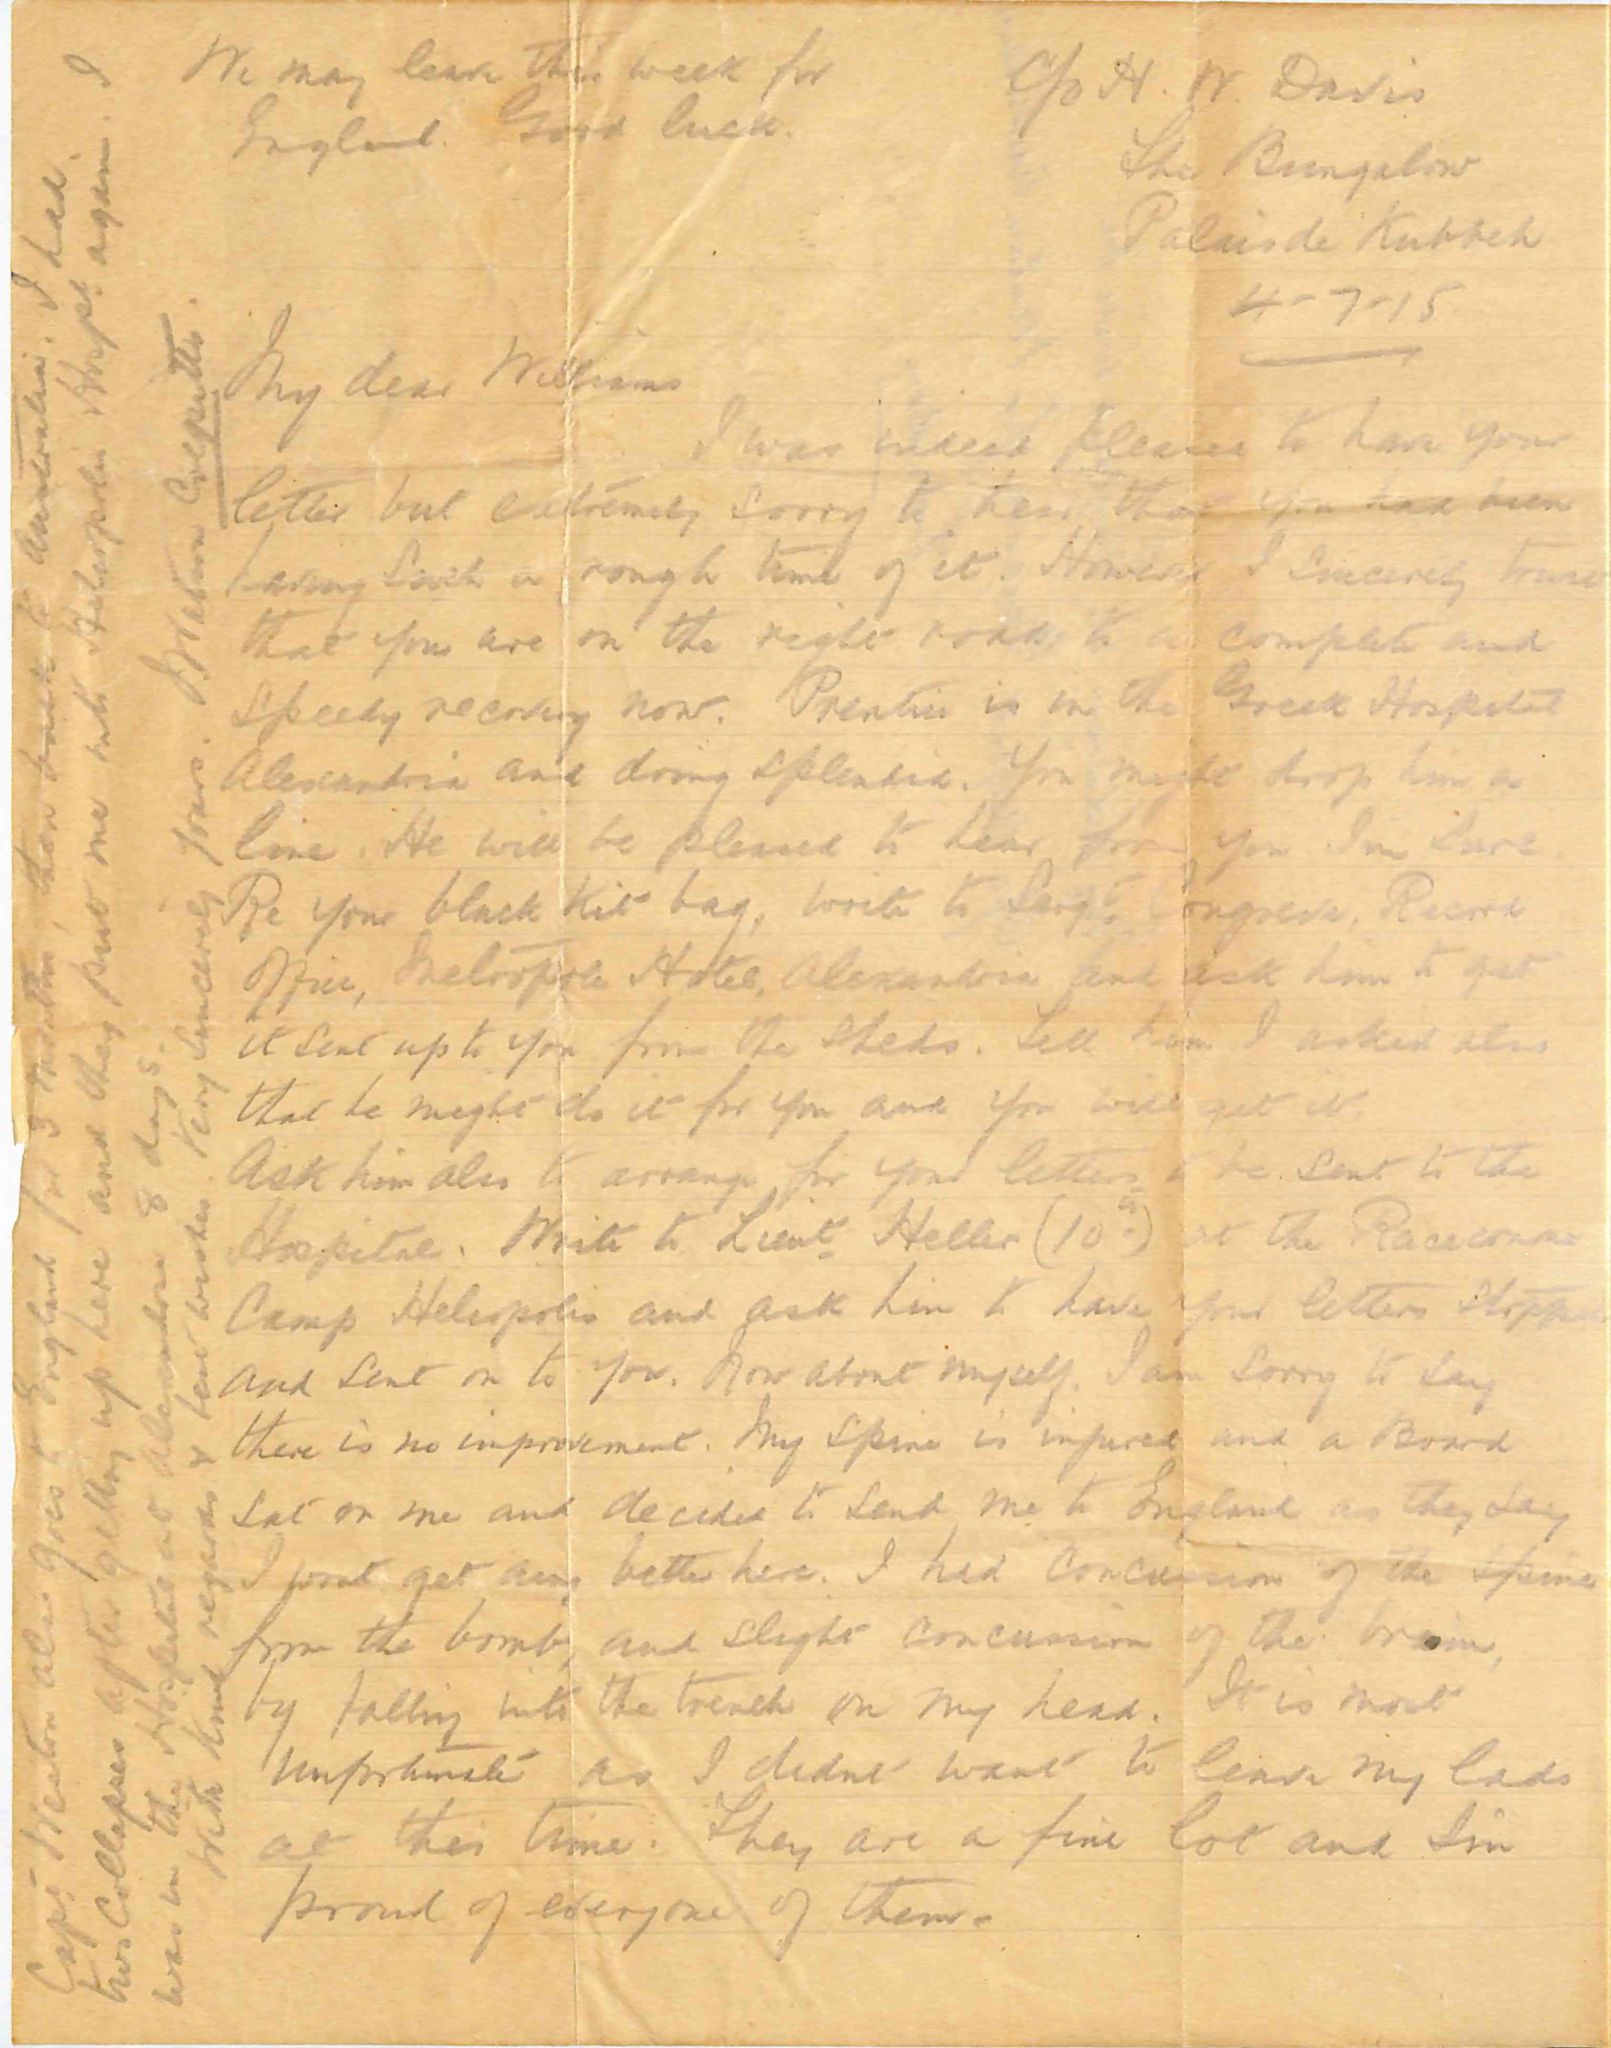 We may leave this week for
England. Good luck.
C/o H. W. Davis
The Bungalow
Palais de Kubbeh
4-7-15
My dear Williams
I was indeed pleased to have your
letter but extremely sorry to hear that you had been
having such a rough time of it. However I sincerely trust
that you are on the right road to a complete and
speedy recovery now. Prentice is in the Greek Hospital
Alexandria and doing splendid. You might drop him a
line. He will be pleased to hear from you I'm sure.
Re your black kit bag, write to Sergt Congreve, Record
Office, Metropole Hotel, Alexandria and ask him to get
it sent up to you from the sheds. Tell him I asked also
that he might do it for you and you will get it.
Ask him also to arrange for your letters to be sent to the
Hospital. Write to Lieut Heller (10th) at the Racecourse
Camp Heliopolis and ask him to have your letters stopped
and sent on to you. Now about myself. I am sorry to say
there is no improvement. My spine is injured and a Board
sat on me and decided to send me to England as they say
I wont get any better here. I had concussion of the spine
from the bomb, and slight concussion of the brain,
by falling into the trench on my head. It is most
unfortunate as I didnt want to leave my lads
at this time. They are a fine lot and I'm
proud of everyone of them.
Capt Weston also goes to England for 3 months, then back to Australia. I had
two collapses after getting up here and they put me into Heliopolis Hospt again. I
was in the Hospital at Alexandria 8 days.
With kind regards & best wishes. Very sincerely yours.